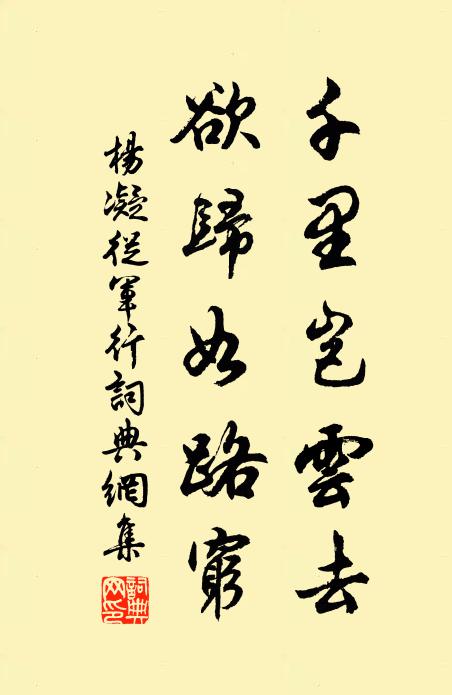 千里岂雲去
欲歸如路窮
楊凝從軍行詞典網集
詞典网印